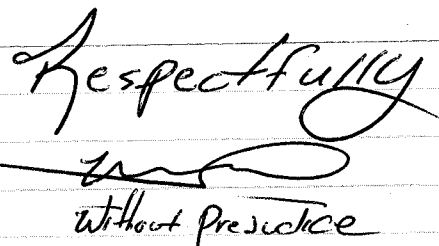 Respectfully
Without Prejudice